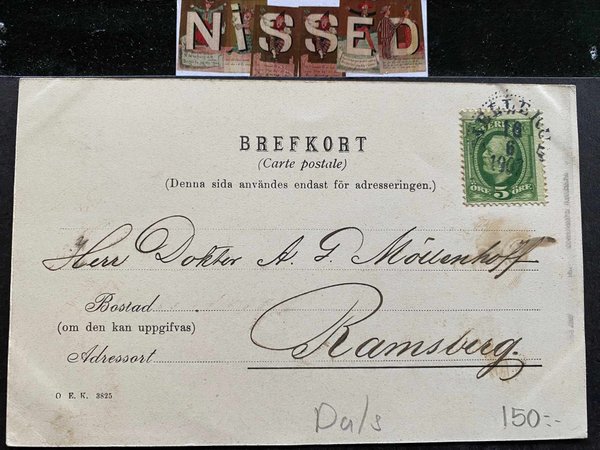 NiSSED
BREFKORT
(Carte postale)
(Denna sida användes endast för adresseringen.)
SVERIGE
ÖRE 5 ÖRE
Herr Doktor A. G. Möllenhoff
Bostad
(om den kan uppgifvas)
Ramsberg.
Adressort
O. E. K. 3825
Dals
150:-